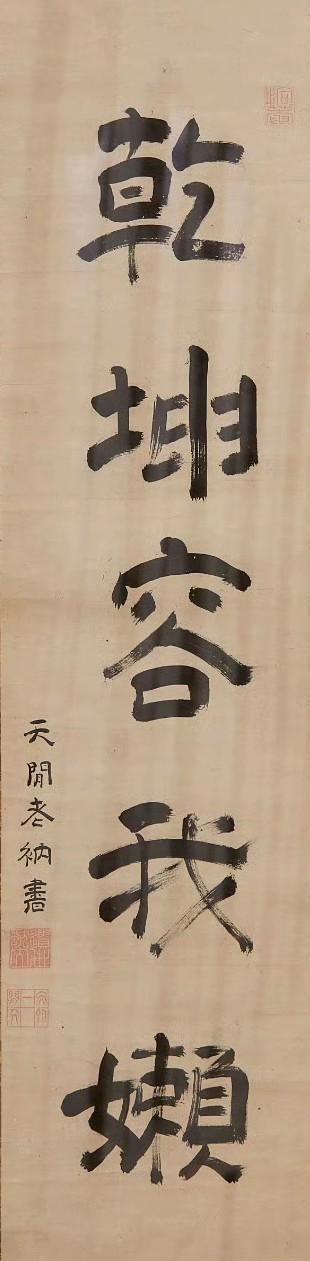 乾坤容我嬾
天閒老衲書